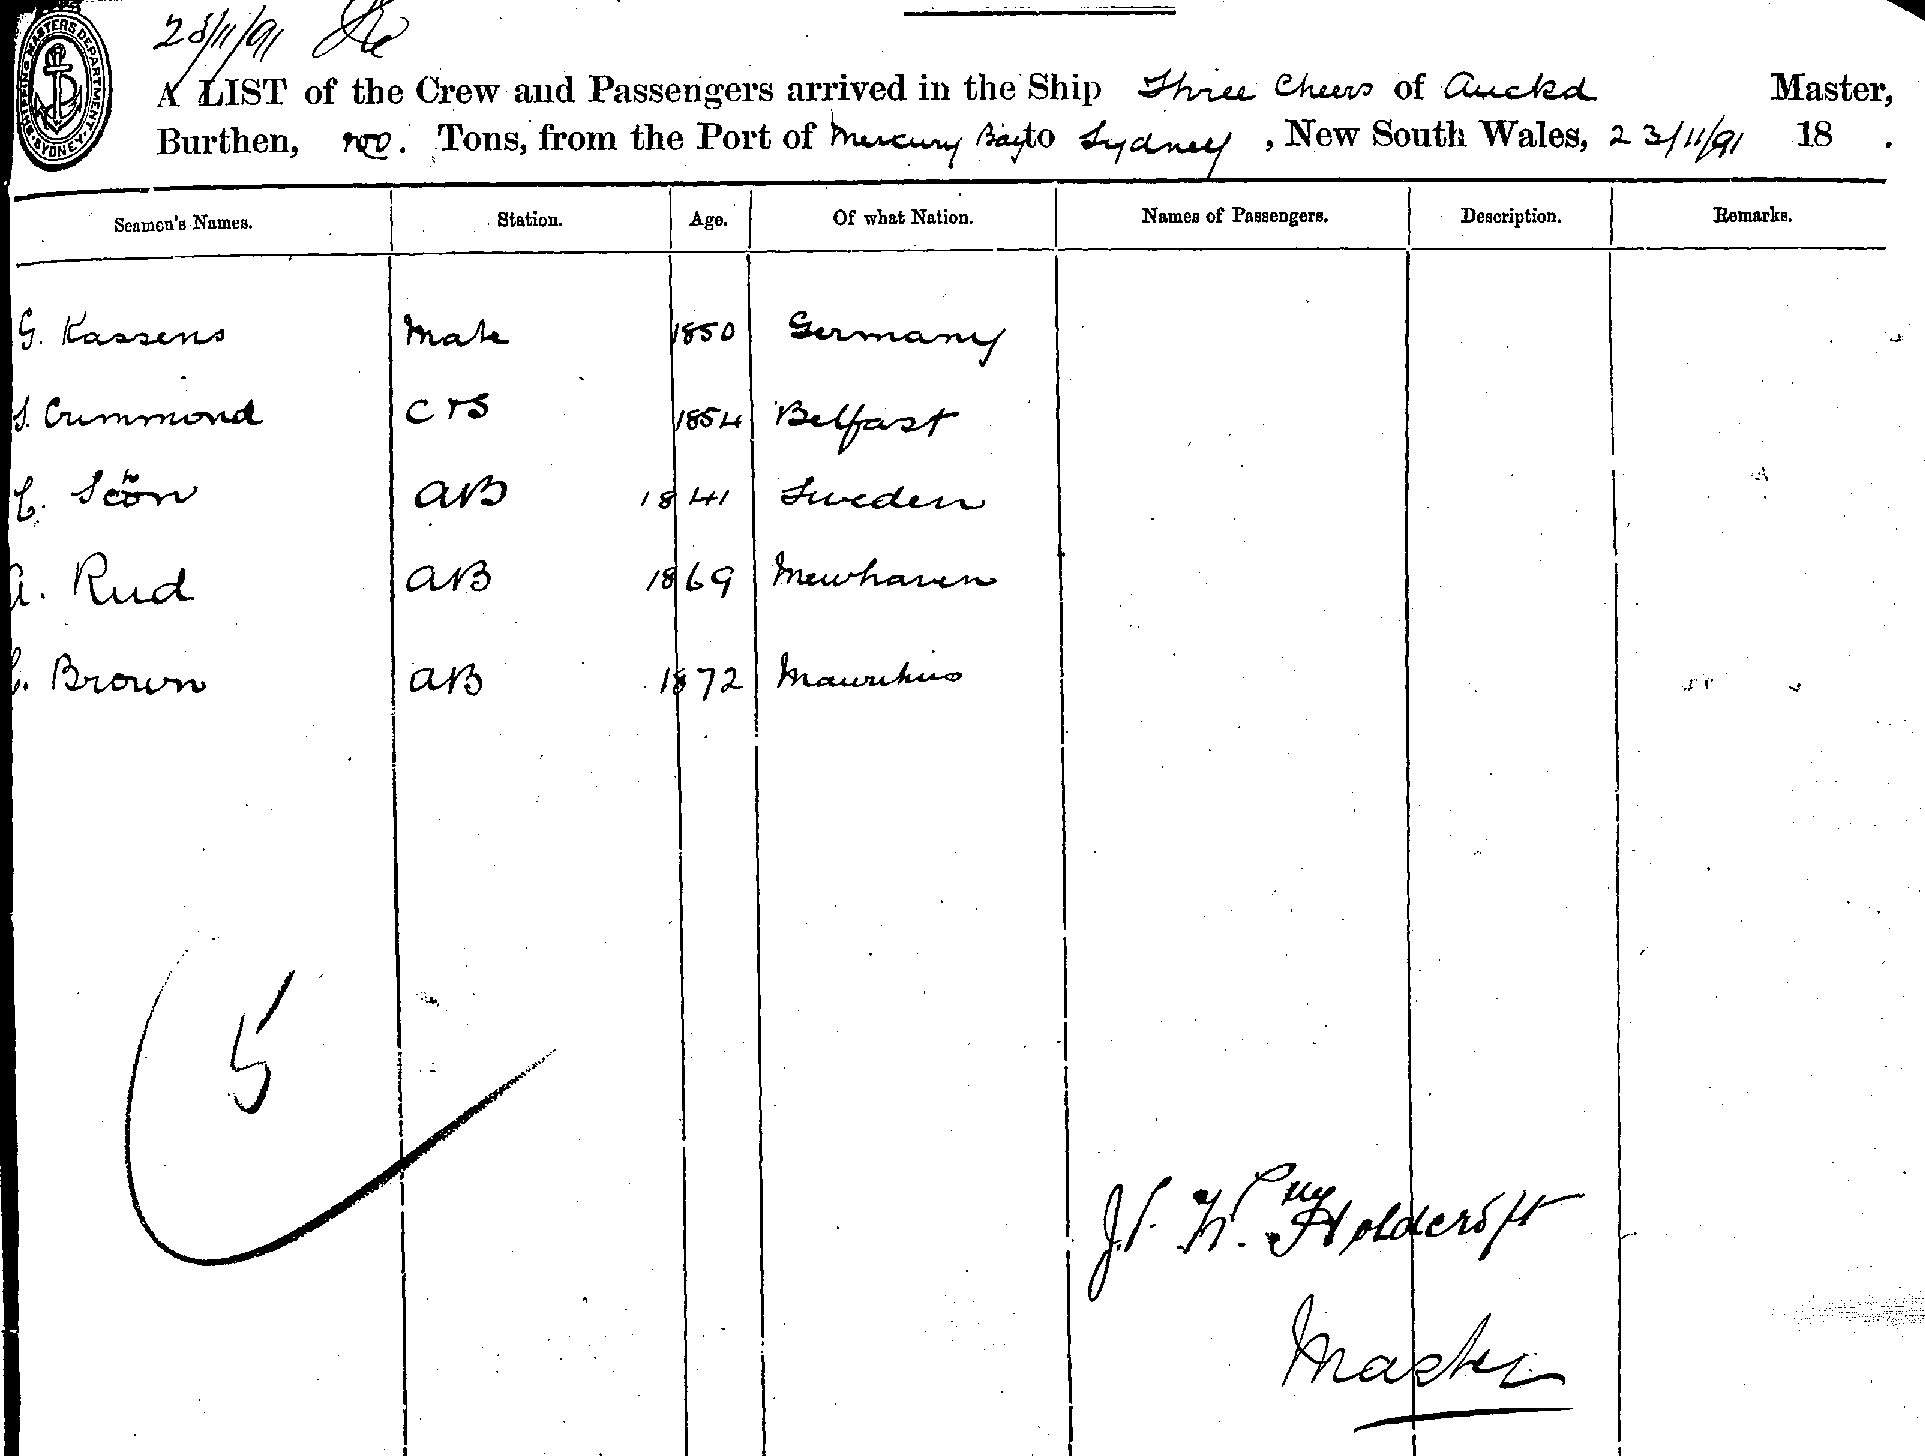 23/11/91
A LIST of the Crew and Passengers arrived in the Ship Three Cheers of Auckd Master,
Burthen, Tons, from the Port of Mercury Bay to Sydney, New South Wales, 23/11/91 18 .
SHIPPING MASTERS DEPARTMENT SYDNEY
Seamen's Names. Station. Age. Of what Nation. Names of Passengers. Description. Remarks.
G. Kassens Mate 1850 Germany
Crummond C & S 1854 Belfast
C. AB 1841 Sweden
A. Rud AB 1869 Newhaven
C. Brown AB 1872 Mauritius
5
Holdcroft
Master